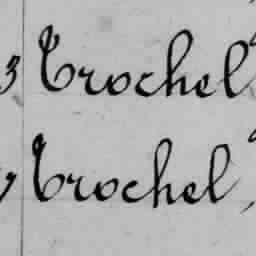 3 Trochel
Trochel,